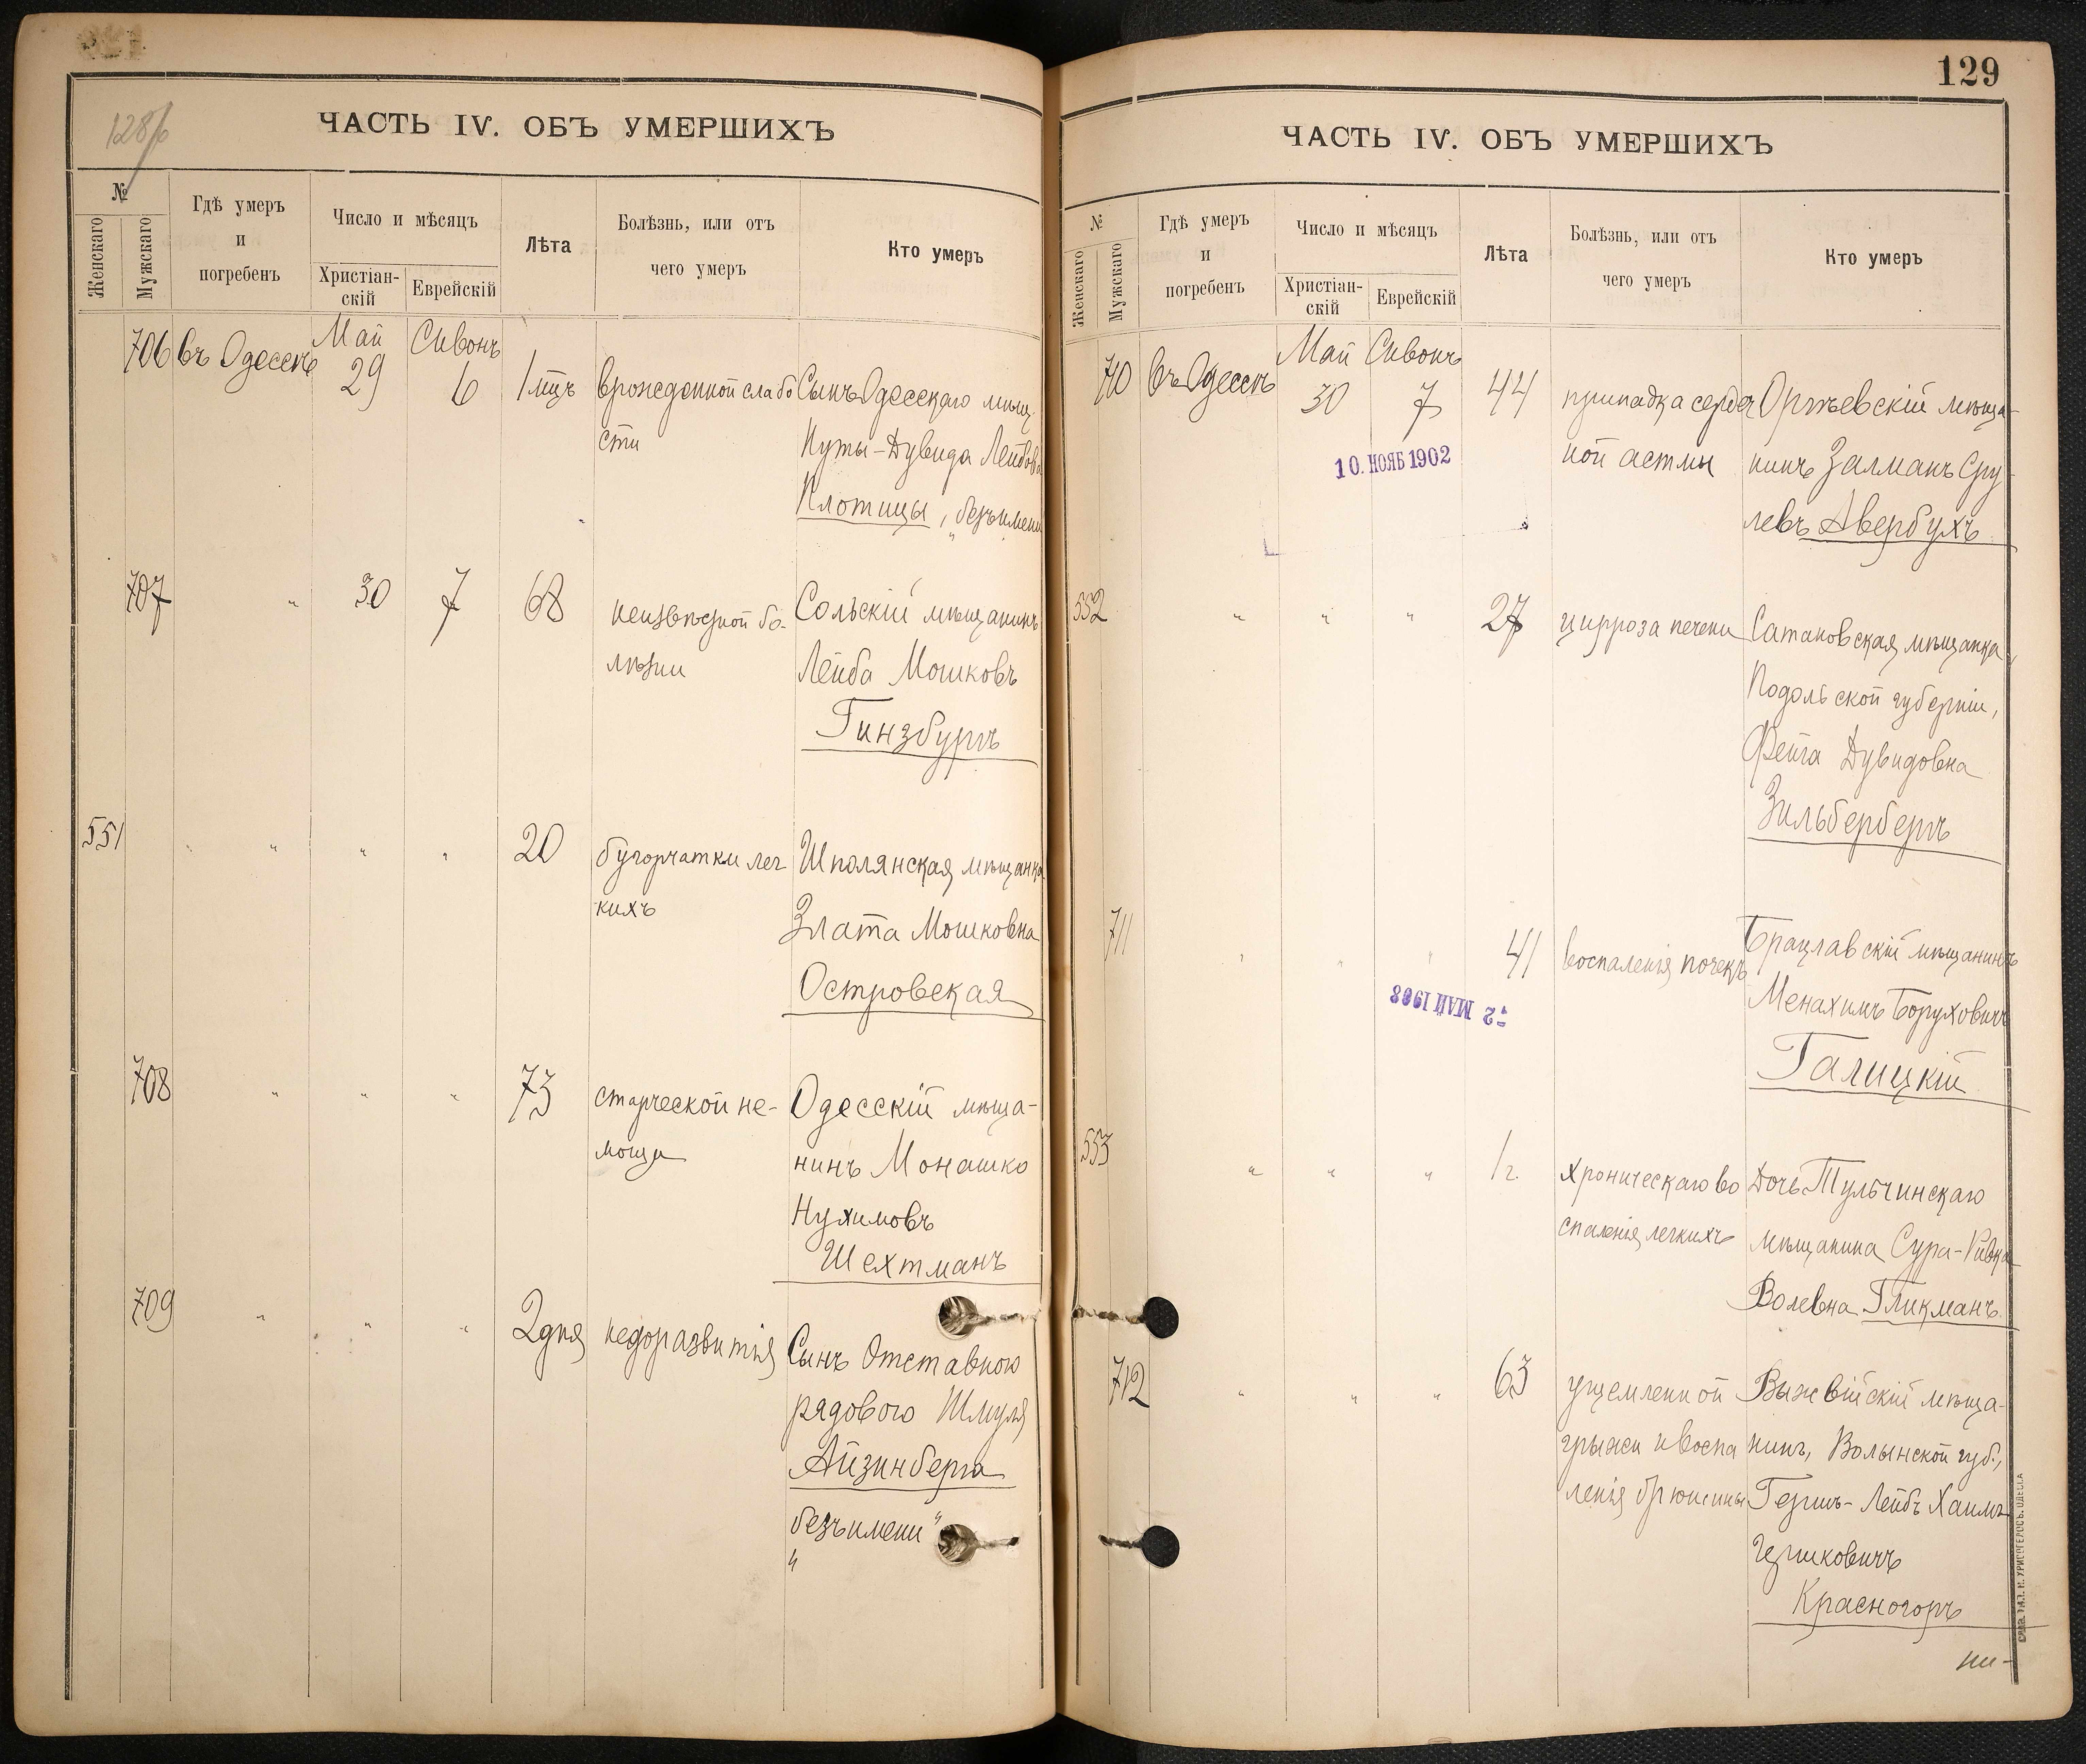 128/б
ЧАСТЬ IV. ОБЪ УМЕРШИХЪ
№
Женскаго
Мужскаго
Гдѣ умеръ
и
погребенъ
Число и мѣсяцъ
Христіан-
скій
Еврейскій
Лѣта
Болѣзнь, или отъ
чего умеръ
Кто умеръ
706 въ Одессѣ Май 29 Сивонъ 6 1 мцъ врожденной слабо Сынъ Одесскаго мѣщ.
сти Нуты-Дувида Лейбова
Плотицы, „безъимени
707 " 30 7 68 неизвѣстной бо- Сольскій мѣщанинъ
лѣзни Лейба Мошковъ
Гинзбургъ
551 " " " " 20 бугорчатки лег Шполянская мѣщанка
кихъ Злата Мошковна
Островская
708 " " " 73 старческой не- Одесскій мѣща-
мощи нинъ Монашко
Нухимовъ
Шехтманъ
709 " " " 2 дня недоразвитія Сынъ Отставного
рядового Шмуля
Айзинберга
„безъимени"
129
ЧАСТЬ IV. ОБЪ УМЕРШИХЪ
№
Женскаго
Мужскаго
Гдѣ умеръ
и
погребенъ
Число и мѣсяцъ
Христіан-
скій
Еврейскій
Лѣта
Болѣзнь, или отъ
чего умеръ
Кто умеръ
710 въ Одессѣ Май 30 Сивонъ 7 44 припадка сердеч Оргѣевскій мѣща-
10. НОЯБ 1902 ной астмы нинъ Залманъ Сру-
левъ Авербухъ
552 " " " 27 цирроза печени Сатановская мѣщанка
Подольской губерніи,
Фейга Дувидовна
Зильбербергъ
711 " " " 41 воспаленія почекъ Брацлавскій мѣщанинъ
-2 МАЙ 1908 Менахимъ Боруховичъ
Галицкій
553 " " " 1 г. хроническаго во Дочь Тульчинскаго
спаленія легкихъ мѣщанина Сура-Ривка
Волевна Гликманъ.
712 " " " 63 ущемленной Выжвійскій мѣща-
грыжи и воспа нинъ, Волынской губ.,
ленія брюшины Гершъ-Лейбъ Хаимъ
Гершковичъ
Красногоръ
ТИП. И. ХРИСОГЕЛОСЪ. ОДЕССА